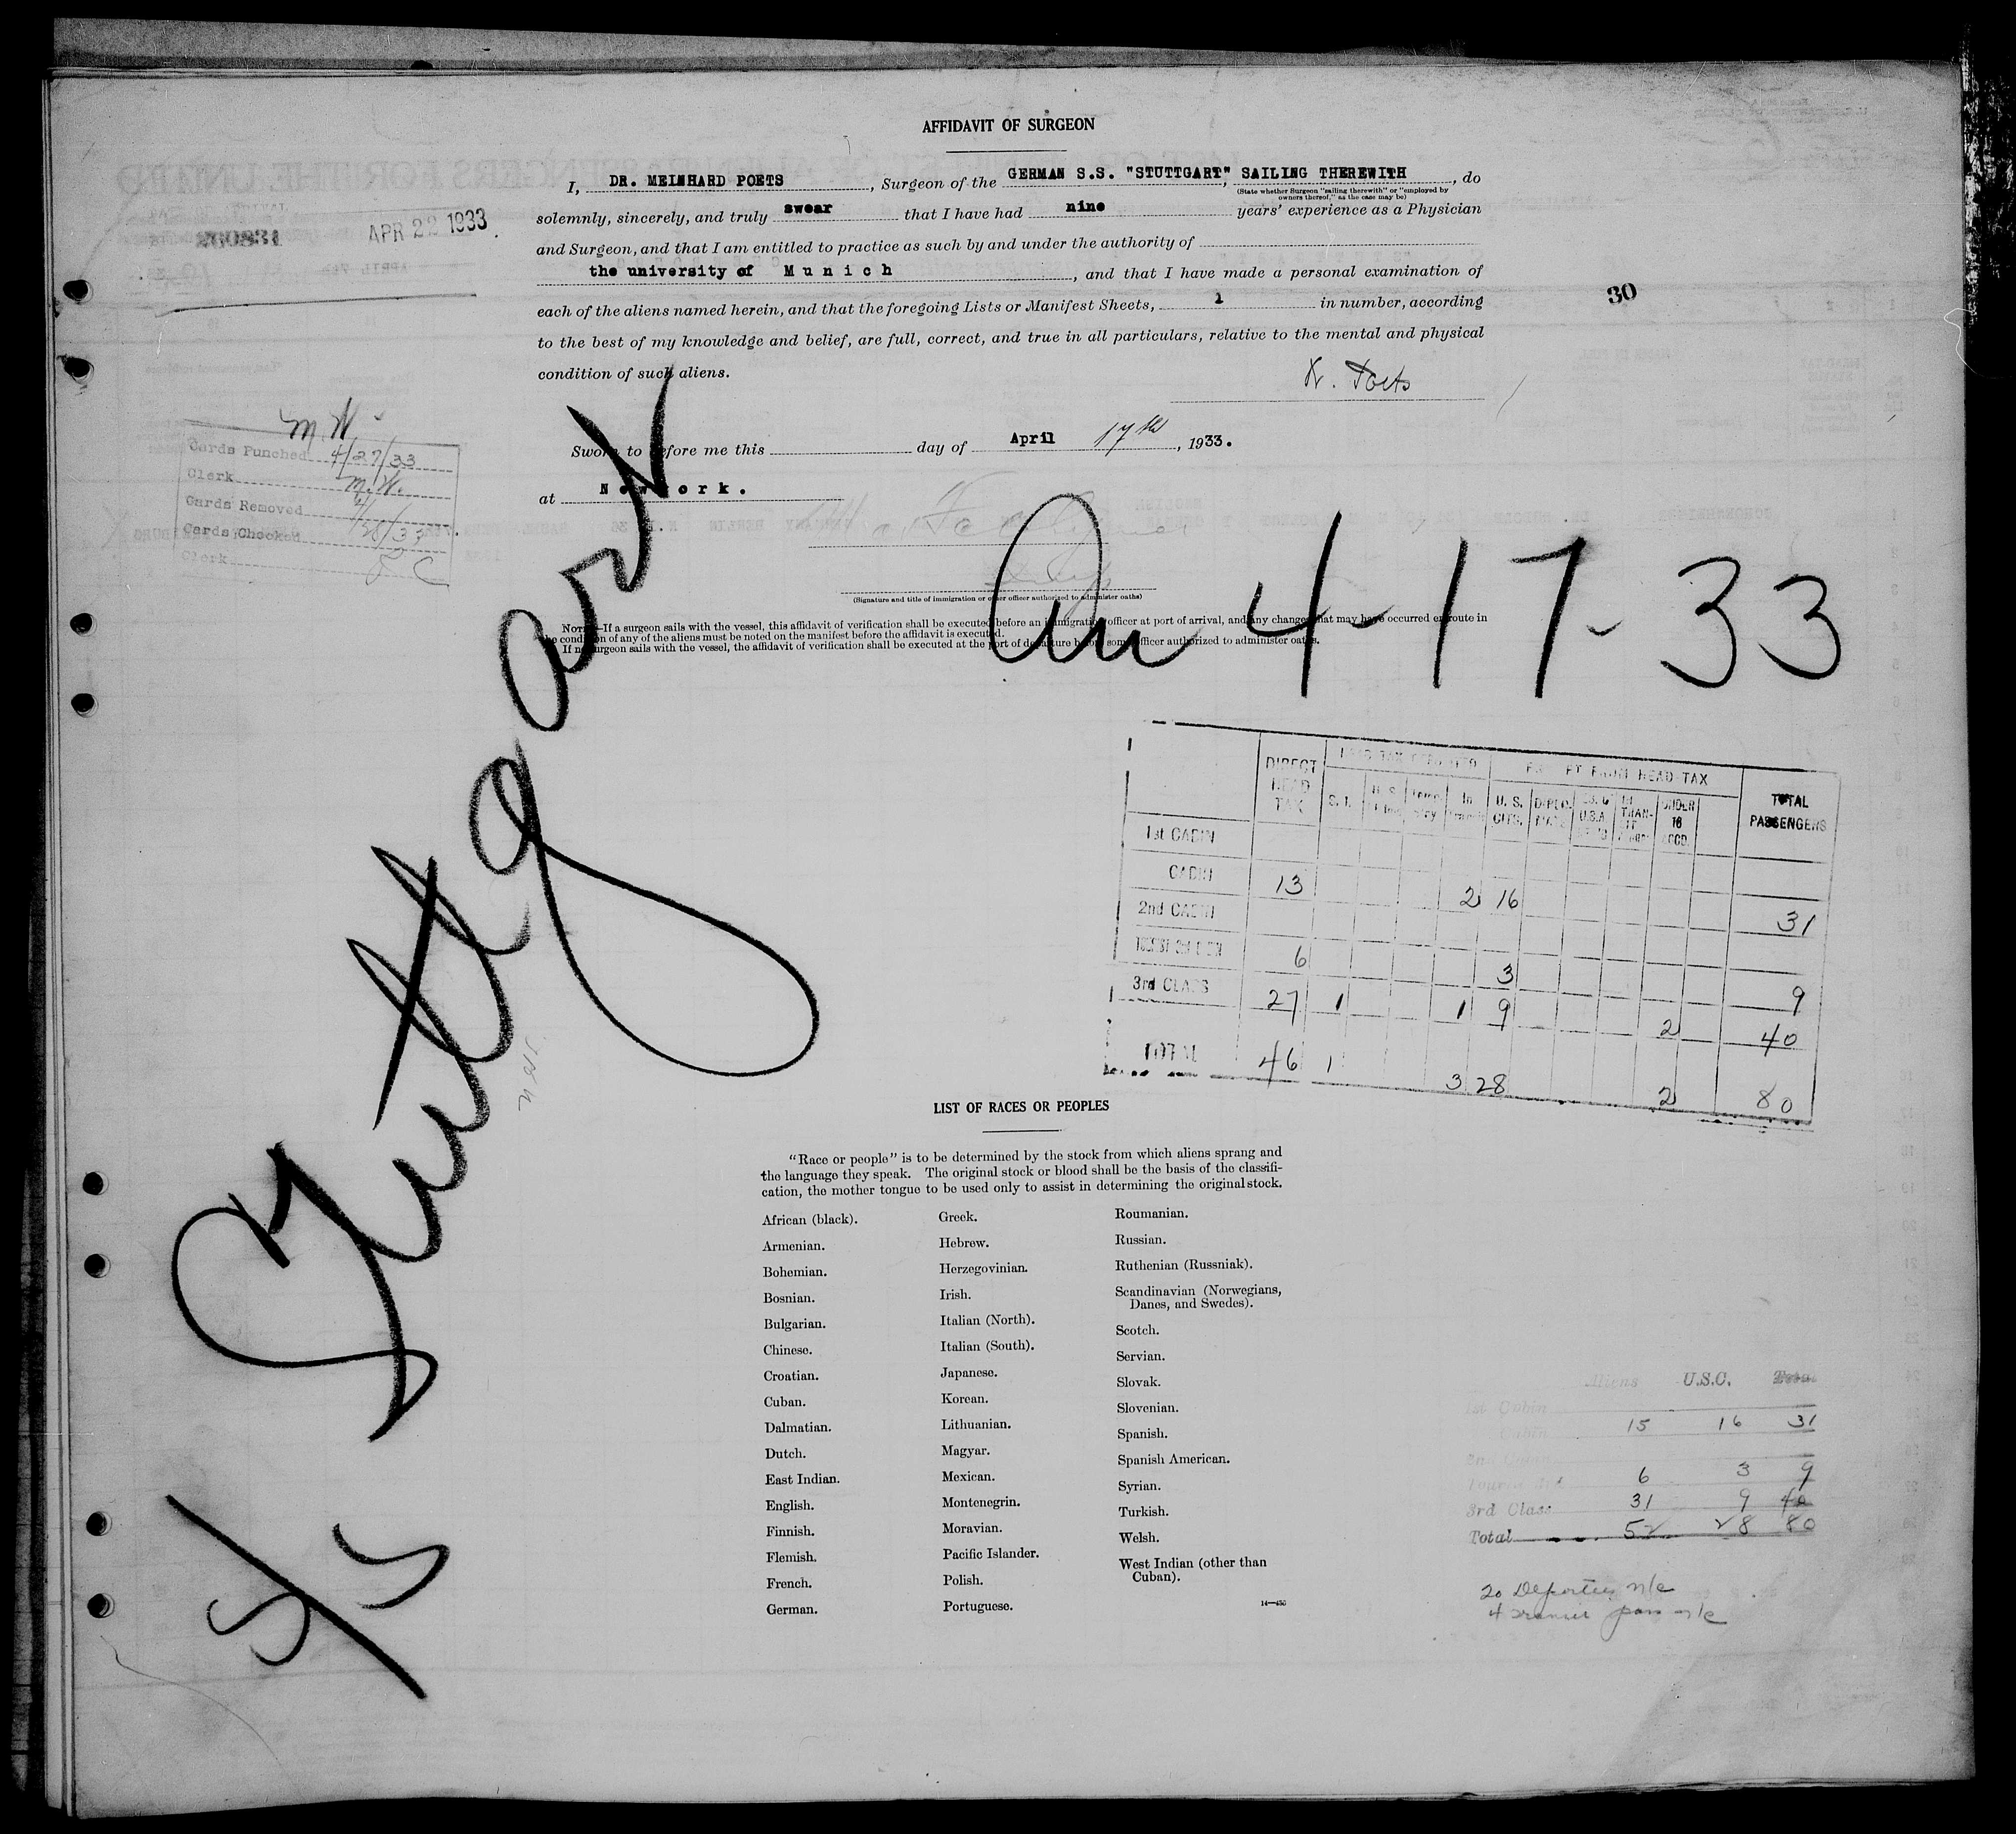 AFFIDAVIT OF SURGEON
I, DR. MEINHARD POETS, Surgeon of the GERMAN S.S. "STUTTGART", SAILING THEREWITH, do
(State whether Surgeon "sailing therewith" or "employed by
owners thereof," as the case may be)
solemnly, sincerely, and truly swear that I have had nine years' experience as a Physician
and Surgeon, and that I am entitled to practice as such by and under the authority of
the university of Munich, and that I have made a personal examination of
each of the aliens named herein, and that the foregoing Lists or Manifest Sheets, 1 in number, according
to the best of my knowledge and belief, are full, correct, and true in all particulars, relative to the mental and physical
condition of such aliens.
APR 22 1933
30
Poets
Sworn to before me this day of April 17th, 1933.
at New York.
M.W.
Cards Punched 4/27/33
Clerk M.W.
Cards Removed
Cards Checked 4/28/33
Clerk
(Signature and title of immigration or other officer authorized to administer oaths)
NOTE.—If a surgeon sails with the vessel, this affidavit of verification shall be executed before an immigration officer at port of arrival, and any changes that may have occurred en route in
the condition of any of the aliens must be noted on the manifest before the affidavit is executed.
If no surgeon sails with the vessel, the affidavit of verification shall be executed at the port of departure before some officer authorized to administer oaths.
Arr 4-17-33
S/S Stuttgart
DIRECT HEAD TAX
HEAD TAX
EXEMPT FROM HEAD TAX
TOTAL PASSENGERS
S. I.
In Transit
U. S. CITS.
DIPLO- MATS
UNDER 16 ACCD.
1st CABIN
CABIN 13 2 16 31
2nd CABIN
TOURIST 3rd CABIN 6 3 9
3rd CLASS 27 1 1 9 2 40
TOTAL 46 1 3 28 2 80
LIST OF RACES OR PEOPLES
"Race or people" is to be determined by the stock from which aliens sprang and
the language they speak. The original stock or blood shall be the basis of the classifi-
cation, the mother tongue to be used only to assist in determining the original stock.
African (black).
Armenian.
Bohemian.
Bosnian.
Bulgarian.
Chinese.
Croatian.
Cuban.
Dalmatian.
Dutch.
East Indian.
English.
Finnish.
Flemish.
French.
German.
Greek.
Hebrew.
Herzegovinian.
Irish.
Italian (North).
Italian (South).
Japanese.
Korean.
Lithuanian.
Magyar.
Mexican.
Montenegrin.
Moravian.
Pacific Islander.
Polish.
Portuguese.
Roumanian.
Russian.
Ruthenian (Russniak).
Scandinavian (Norwegians,
Danes, and Swedes).
Scotch.
Servian.
Slovak.
Slovenian.
Spanish.
Spanish American.
Syrian.
Turkish.
Welsh.
West Indian (other than
Cuban).
14—455
Aliens U.S.C. Total
1st Cabin
Cabin 15 16 31
2nd Cabin
Tourist 3rd 6 3 9
3rd Class 31 9 40
Total 52 28 80
20 Deportees n/c
4 transit pass n/c